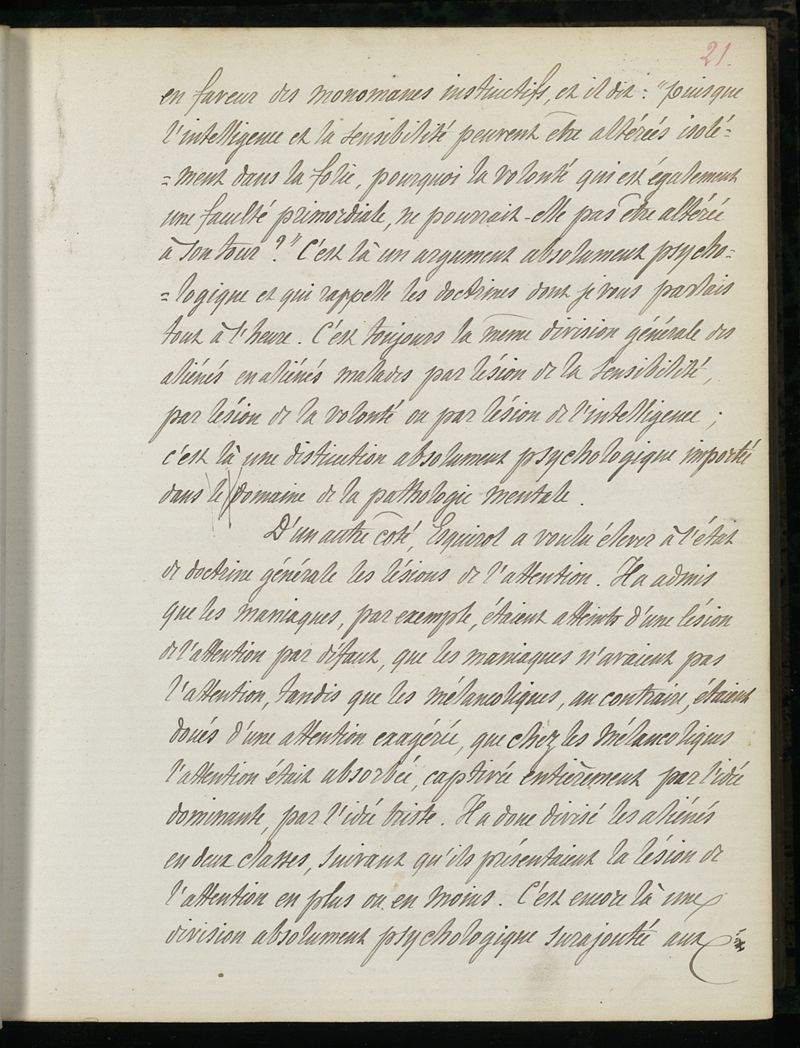 21.
en faveur des monomanes instinctifs, et il dit : "Puisque
l'intelligence et la sensibilité peuvent être altérées isolé-
=ment dans la folie, pourquoi la volonté qui est également
une faculté primordiale, ne pourrait-elle pas être altérée
à son tour ?" C'est là un argument absolument psycho-
=logique et qui rappelle les doctrines dont je vous parlais
tout à l'heure. C'est toujours la même division générale des
aliénés en aliénés malades par lésion de la sensibilité,
par lésion de la volonté ou par lésion de l'intelligence ;
c'est là une distinction absolument psychologique importée
dans le domaine de la pathologie mentale.
D'un autre côté, Esquirol a voulu élever à l'état
de doctrine générale les lésions de l'attention. Il a admis
que les maniaques, par exemple, étaient atteints d'une lésion
de l'attention par défaut, que les maniaques n'avaient pas
l'attention, tandis que les mélancoliques, au contraire, étaient
doués d'une attention exagérée, que chez les mélancoliques
l'attention était absorbée, captivée entièrement par l'idée
dominante, par l'idée triste. Il a donc divisé les aliénés
en deux classes, suivant qu'ils présentaient la lésion de
l'attention en plus ou en moins. C'est encore là une
division absolument psychologique surajoutée aux